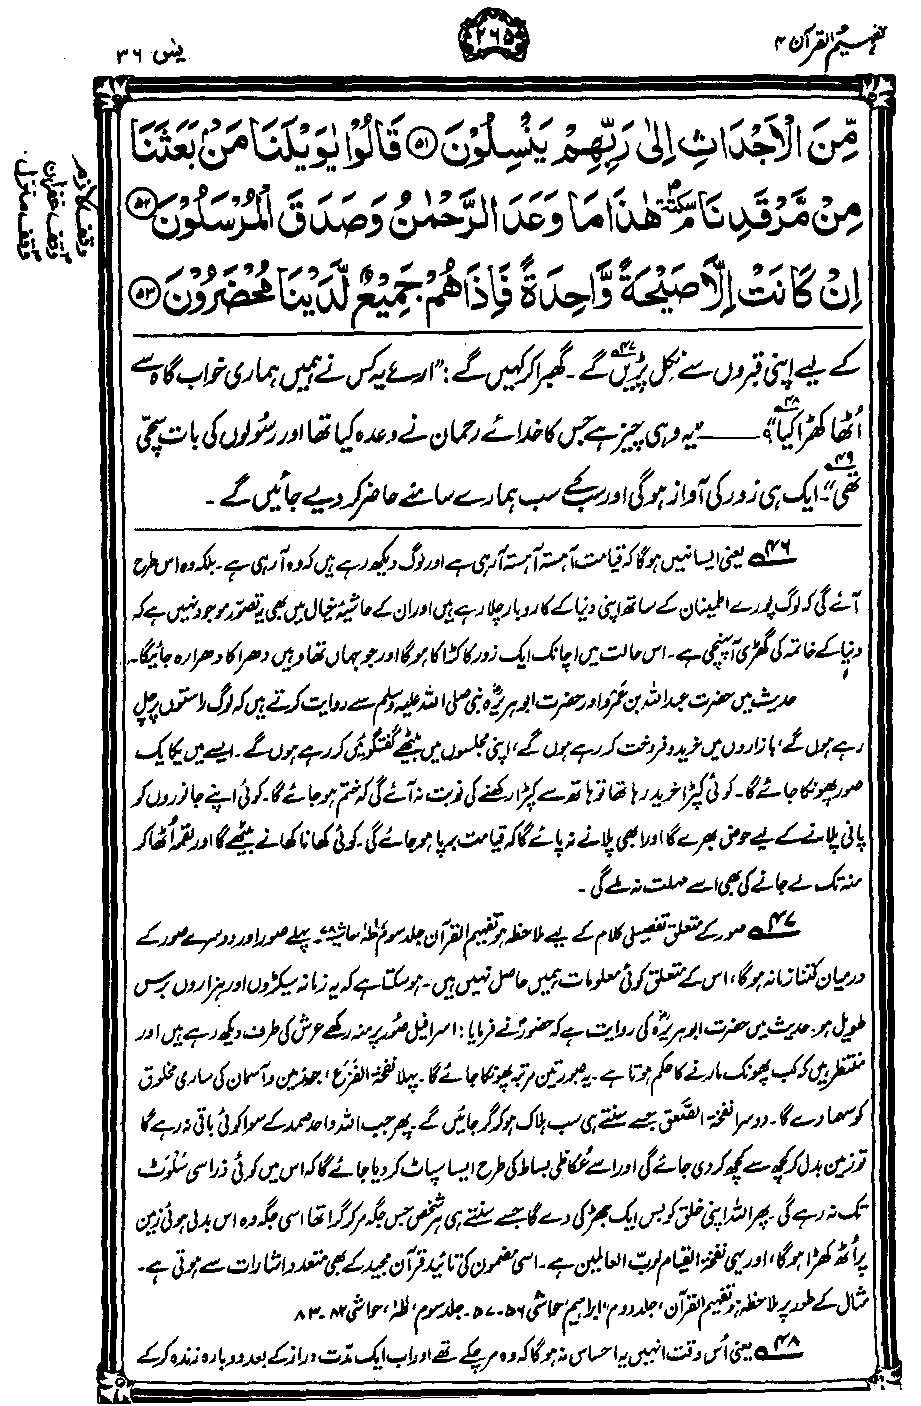 تفہیم القرآن ۴
۲۶۵
یٰس ۳۶
مِّنَ الْاَجْدَاثِ اِلٰى رَبِّهِمْ يَنْسِلُوْنَ ﴿۵۱﴾ قَالُوْا يٰوَيْلَنَا مَنْۢ بَعَثَنَا
مِنْ مَّرْقَدِنَا ۘ سكتة هٰذَا مَا وَعَدَ الرَّحْمٰنُ وَصَدَقَ الْمُرْسَلُوْنَ ﴿۵۲﴾
اِنْ كَانَتْ اِلَّا صَيْحَةً وَّاحِدَةً فَاِذَا هُمْ جَمِيْعٌ لَّدَيْنَا مُحْضَرُوْنَ ﴿۵۳﴾
وقف لازم
وقف غفران
وقف منزل
کے لیے اپنی قبروں سے نکل پڑیں۴۷ گے۔ گھبرا کر کہیں گے: "ارے یہ کس نے ہمیں ہماری خواب گاہ سے
اُٹھا کھڑا کیا؟"۴۸ ——— "یہ وہی چیز ہے جس کا خدائے رحمان نے وعدہ کیا تھا اور رسُولوں کی بات سچّی
تھی"۴۹۔ ایک ہی زور کی آواز ہوگی اور سب کے سب ہمارے سامنے حاضر کر دیے جائیں گے۔
۴۶ یعنی ایسا نہیں ہوگا کہ قیامت آہستہ آہستہ آ رہی ہے اور لوگ دیکھ رہے ہیں کہ وہ آ رہی ہے۔ بلکہ وہ اس طرح
آئے گی کہ لوگ پورے اطمینان کے ساتھ اپنی دنیا کے کاروبار چلا رہے ہیں اور ان کے حاشیۂ خیال میں بھی یہ تصوّر موجود نہیں ہے کہ
دنیا کے خاتمہ کی گھڑی آ پہنچی ہے۔ اس حالت میں اچانک ایک زور کا کڑاکا ہوگا اور جو جہاں تھا وہیں دھرا کا دھرا رہ جائیگا۔
حدیث میں حضرت عبداللہ بن عمرؓ اور حضرت ابو ہریرہؓ نبی صلی اللہ علیہ وسلم سے روایت کرتے ہیں کہ لوگ راستوں پر چل
رہے ہوں گے، بازاروں میں خرید و فروخت کر رہے ہوں گے، اپنی مجلسوں میں بیٹھے گفتگوئیں کر رہے ہوں گے۔ ایسے میں یکایک
صور پھونکا جائے گا۔ کوئی کپڑا خرید رہا تھا تو ہاتھ سے کپڑا رکھنے کی نوبت نہ آئے گی کہ ختم ہو جائے گا۔ کوئی اپنے جانوروں کو
پانی پلانے کے لیے حوض بھرے گا اور ابھی پلانے نہ پائے گا کہ قیامت برپا ہو جائے گی۔ کوئی کھانا کھانے بیٹھے گا اور لقمہ اُٹھا کر
منہ تک لے جانے کی بھی اسے مہلت نہ ملے گی۔
۴۷ صور کے متعلق تفصیلی کلام کے لیے ملاحظہ ہو تفہیم القرآن جلد سوم، طٰہٰ، حاشیہ ۷۸۔ پہلے صور اور دوسرے صور کے
درمیان کتنا زمانہ ہوگا، اس کے متعلق کوئی معلومات ہمیں حاصل نہیں ہیں۔ ہو سکتا ہے کہ یہ زمانہ سیکڑوں اور ہزاروں برس
طویل ہو۔ حدیث میں حضرت ابو ہریرہؓ کی روایت ہے کہ حضورؐ نے فرمایا: اسرافیل صُور پر منہ رکھے عرش کی طرف دیکھ رہے ہیں اور
منتظر ہیں کہ کب پھونک مارنے کا حکم ہوتا ہے۔ یہ صور تین مرتبہ پھونکا جائے گا۔ پہلا نفخۃ الفَزَع، جو زمین و آسمان کی ساری مخلوق
کو سہما دے گا۔ دوسرا نفخۃ الصَّعق جسے سنتے ہی سب ہلاک ہو کر گر جائیں گے۔ پھر جب اللہ واحد صمد کے سوا کوئی باقی نہ رہے گا
تو زمین بدل کر کچھ سے کچھ کر دی جائے گی اور اسے عُکاظی بساط کی طرح ایسا سپاٹ کر دیا جائے گا کہ اس میں کوئی ذرا سی سَلوَٹ
تک نہ رہے گی۔ پھر اللہ اپنی خلق کو بس ایک جھڑکی دے گا جسے سنتے ہی ہر شخص جس جگہ مر کر گرا تھا اسی جگہ وہ اس بدلی ہوئی زمین
پر اُٹھ کھڑا ہوگا، اور یہی نفخۃ القیام لرب العالمین ہے۔ اسی مضمون کی تائید قرآن مجید کے بھی متعدد اشارات سے ہوتی ہے۔
مثال کے طور پر ملاحظہ ہو تفہیم القرآن، جلد دوم، ابراہیم، حواشی ۵۶-۵۷۔ جلد سوم، طٰہٰ، حواشی ۸۲-۸۳
۴۸ یعنی اُس وقت انہیں یہ احساس نہ ہوگا کہ وہ مر چکے تھے اور اب ایک مدّت دراز کے بعد دوبارہ زندہ کر کے